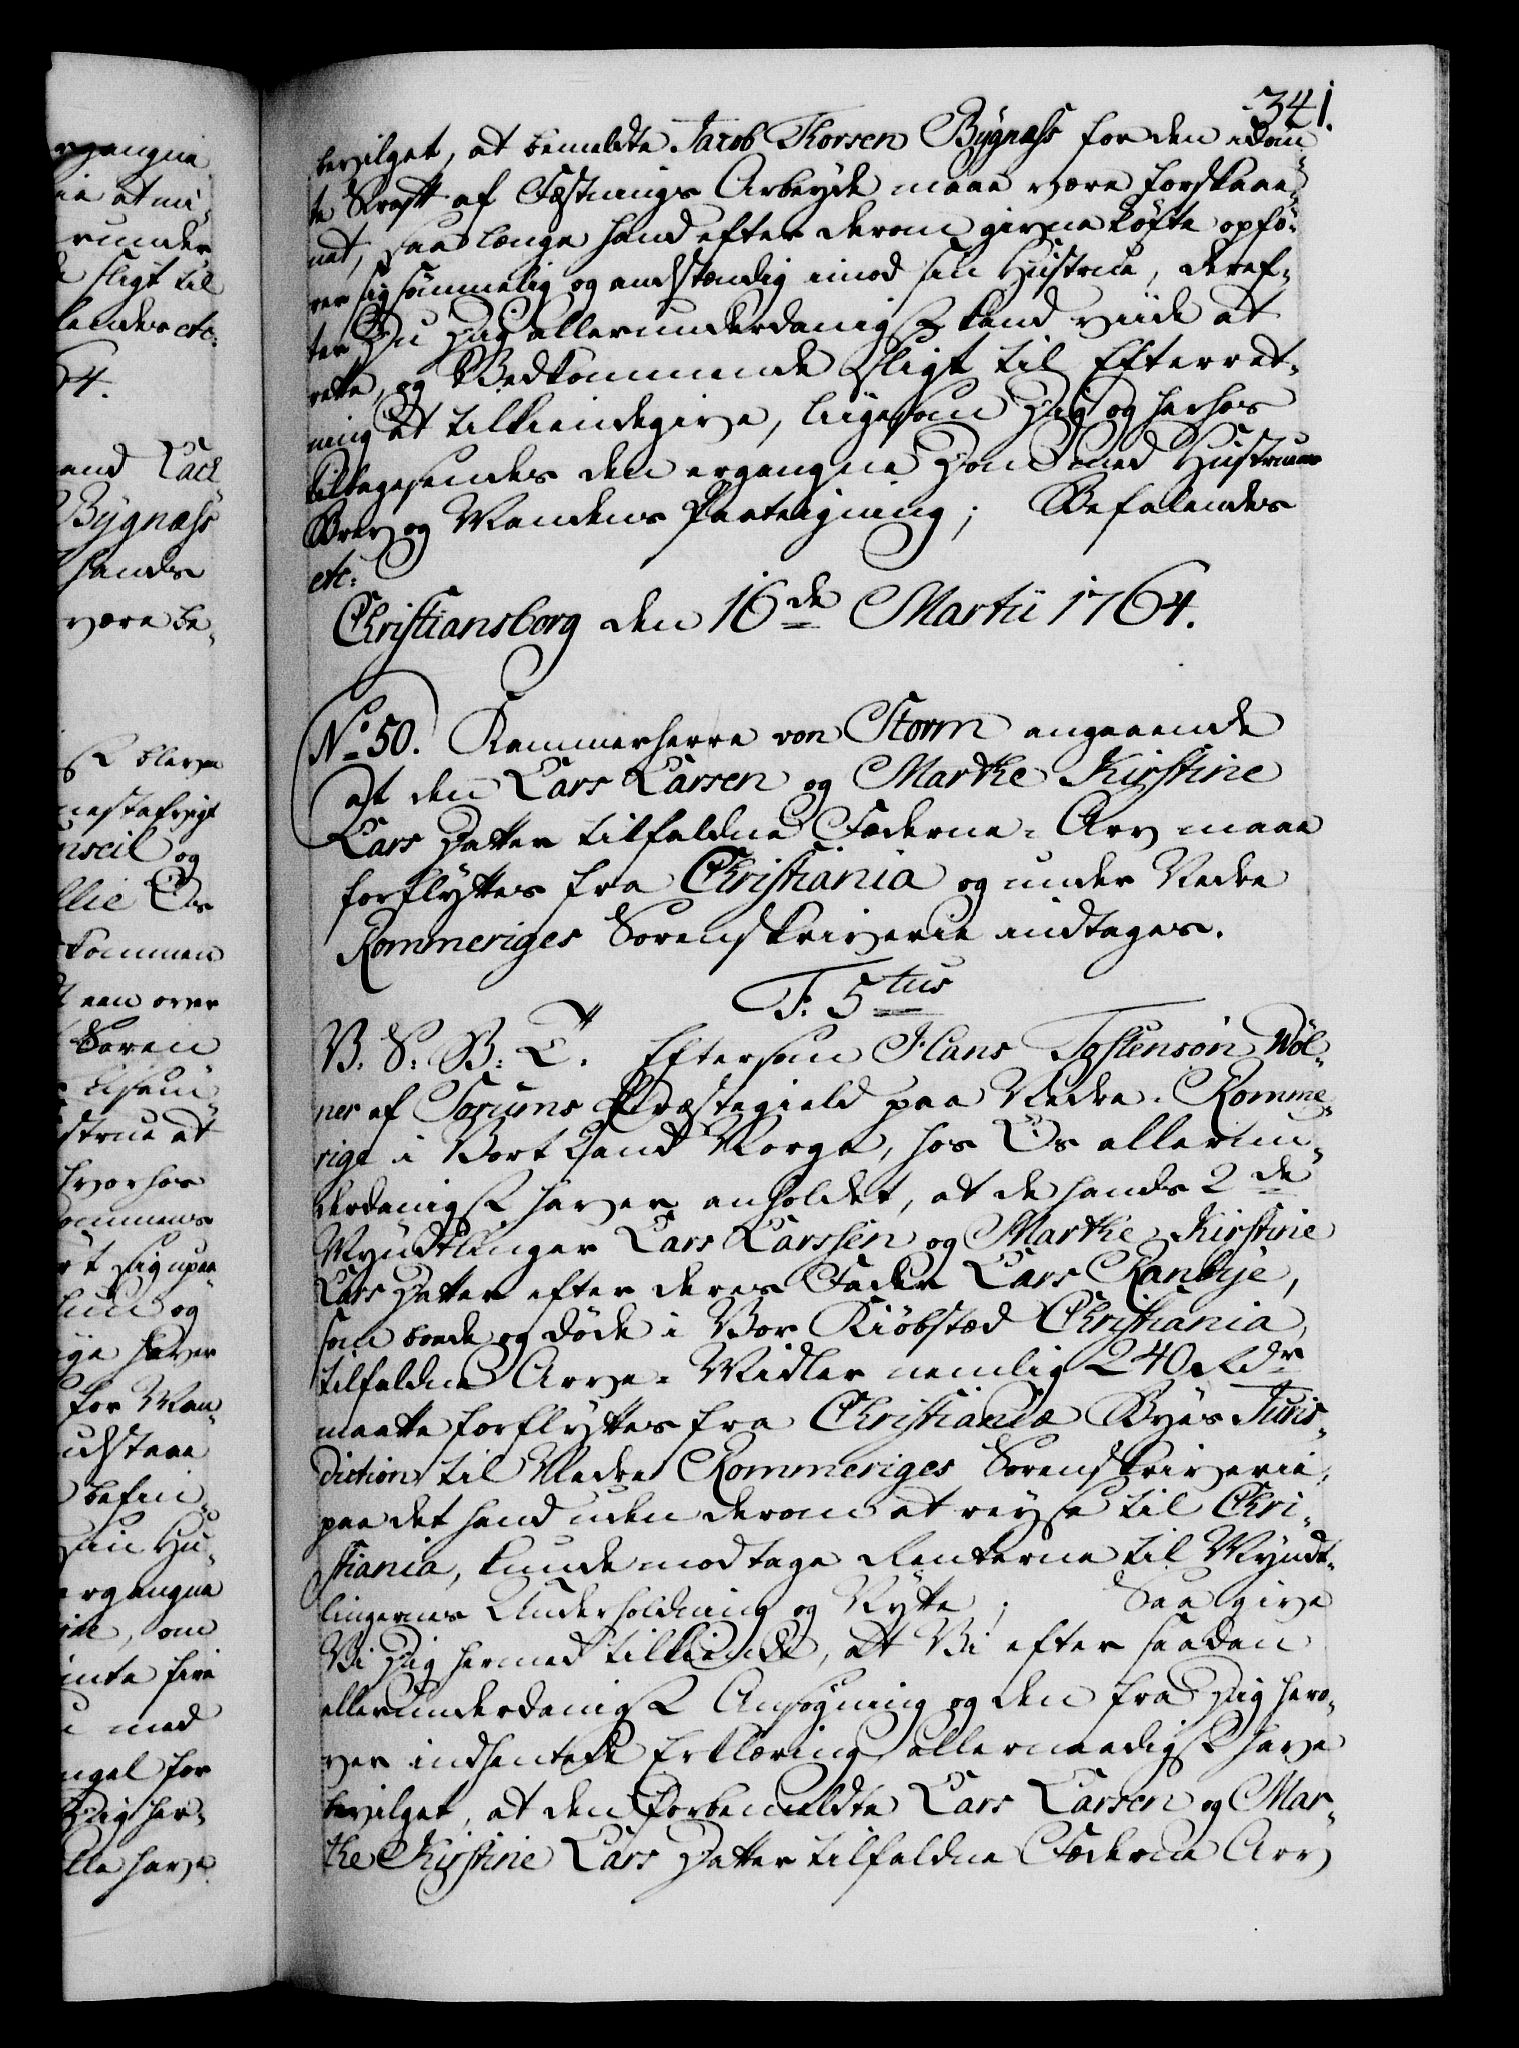 341.
bevilget, at bemeldte Jacob Thorsen Bÿgnæss for den idöm¬
te Straff af Fæstnings Arbeyde maae være forskaa¬
net, saa længe hand efter derom givne Löfte opfö¬
rer sig sömmelig og anstændig imod sin Hustrue, deref¬
ter Du Dig allerunderdanigst haver at
rette, og Vedkommende sligt til Efterret¬
ning at tilkiendegive, liigesom Dig og herhos
tilbagesendes den ergangne Dom med Hustruens
Brev og Mandens Paategning; Befalendes
etc:
Christiansborg den 16de Martii 1764.
No 50. Kammerherre von Storm angaaende
at den Lars Larsen og Marthe Kirstine
Lars Datter tilfaldne Fæderne-Arv maae
forflyttes fra Christiania og under Nedre
Rommeriges Sorenskriverie indtages.
F. 5tus
V. S. G. T. Eftersom Hans Tostensön Wöl¬
ner af Sorums Præstegield paa Nedre-Romme¬
rige i Vort Land Norge, hos Os allerun¬
derdanigst haver anholdet, at de hands 2de
Myndtlinger Lars Larssen og Marthe Kirstine
Lars Datter efter deres Fader Lars Ranbye,
som boede og döde i Vor Kiöbstæd Christiania,
tilfaldne Arve-Midler nemlig 240 Rdr
maatte forflyttes fra Christianiæ Byes Juris¬
diction til Nedre Rommeriges Sorenskriverie,
paa det hand uden derom at reyse til Chri¬
stiania, kunde modtage Renterne til Myndt¬
lingernes Underholdning og Nytte; Saa give
Vi Dig hermed tilkiende, at Vi efter saadan
allerunderdanigst Ansögning og den fra Dig hero¬
ver indhentede Erklæring allernaadigst have
bevilget, at den forbemeldte Lars Larsen og Mar¬
the Kirstine Lars Datter tilfaldne Fæderne Arv